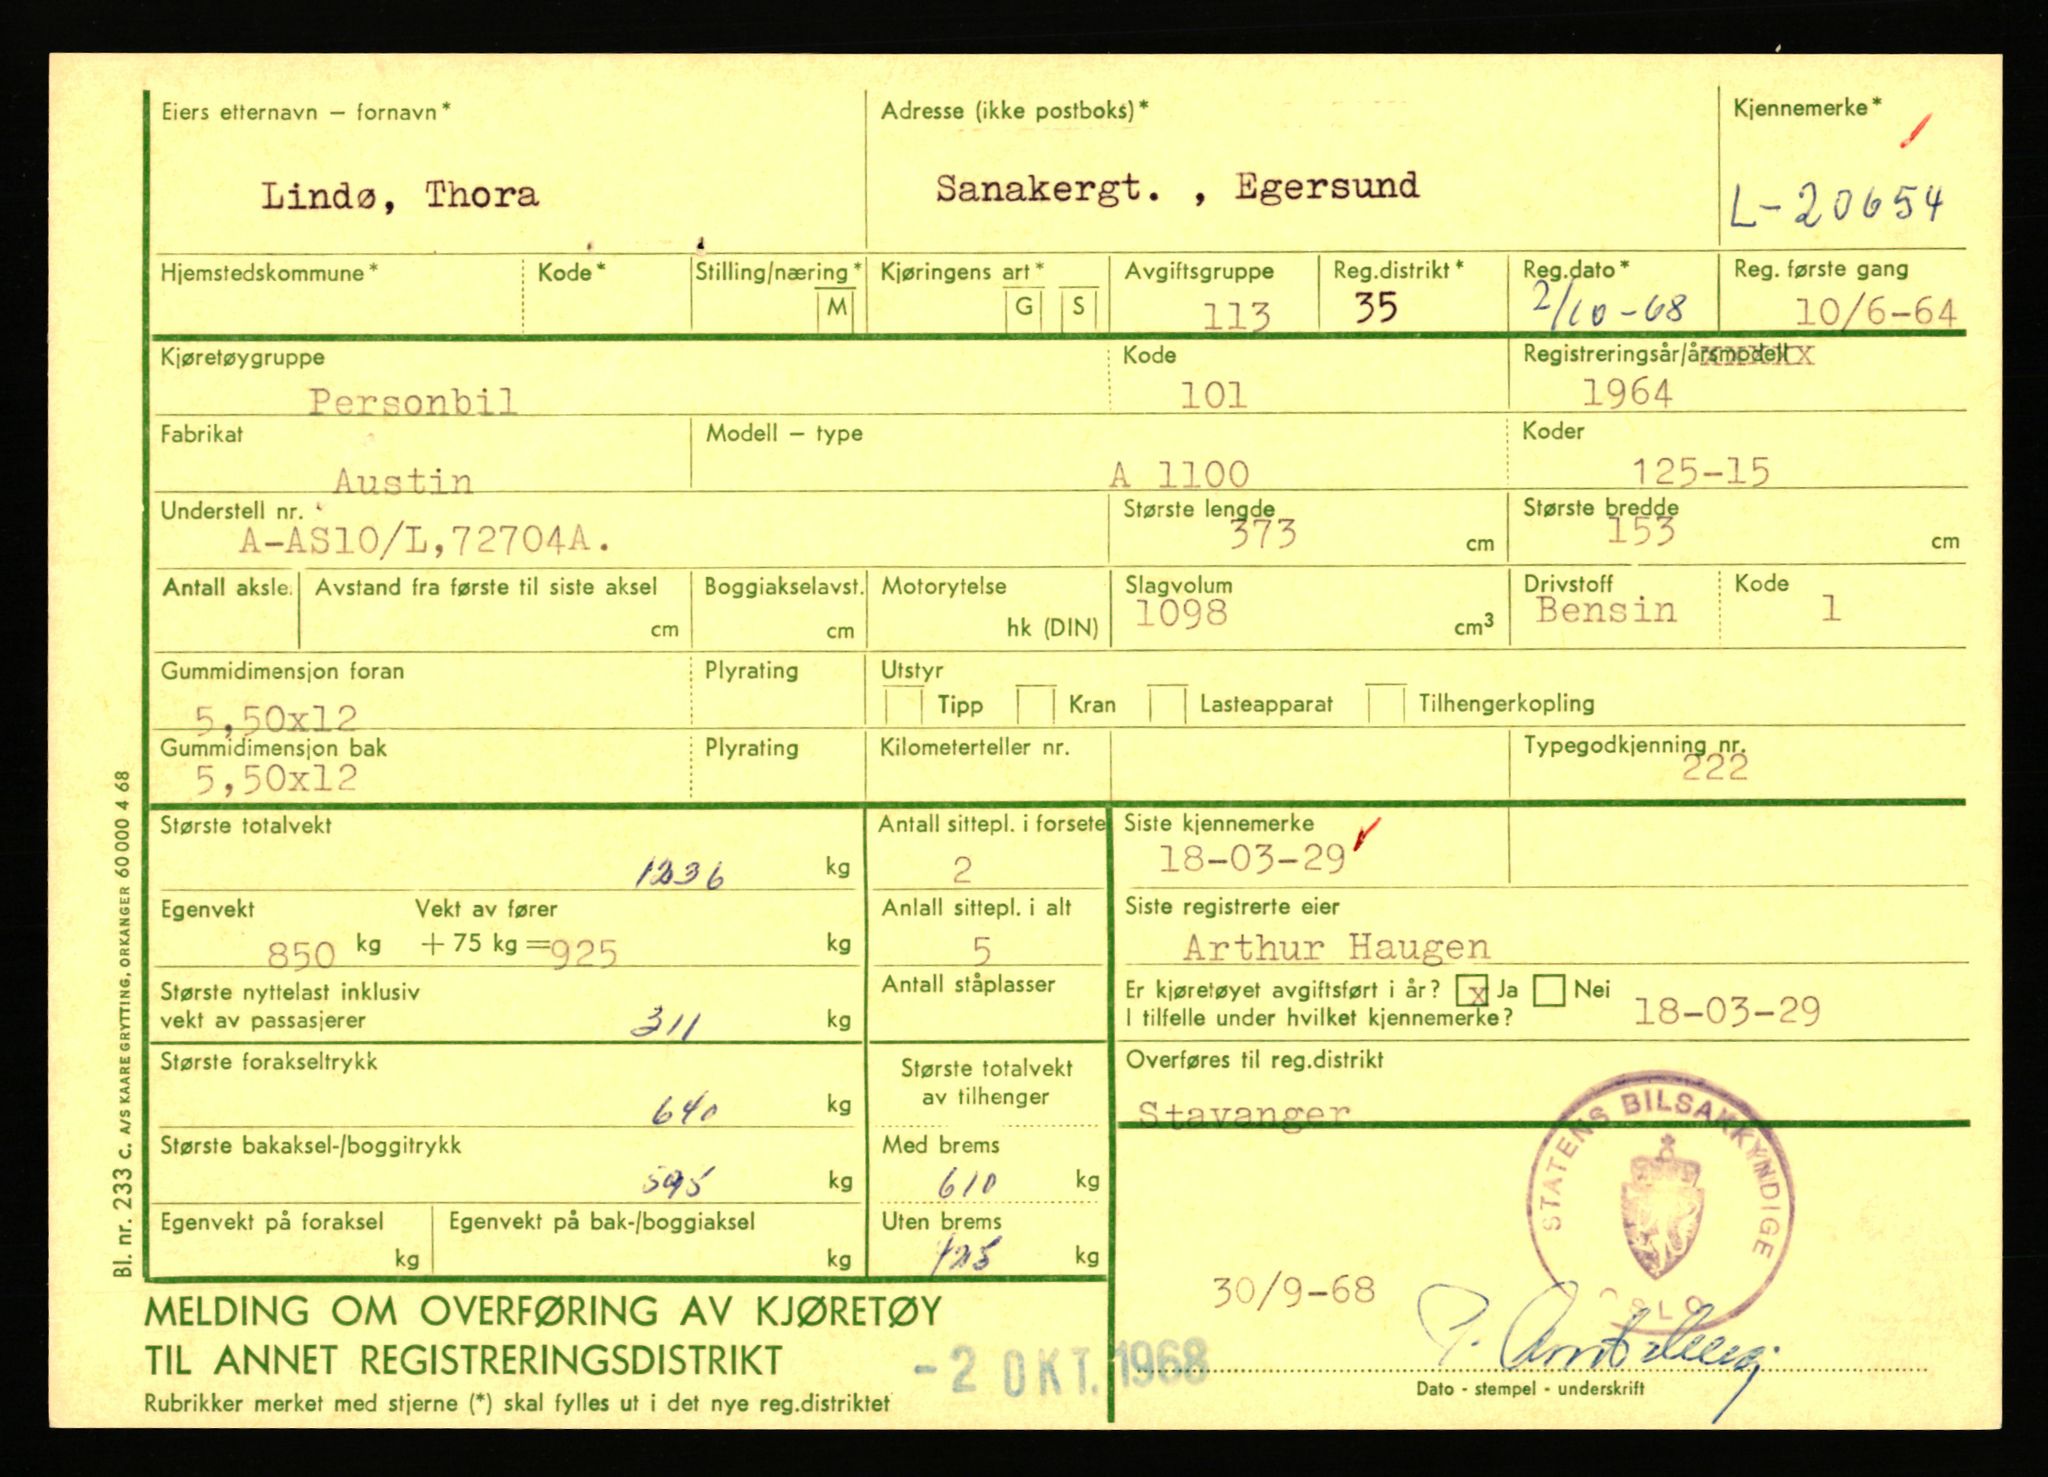 Eiers etternavn – fornavn*
Lindø, Thora
Adresse (ikke postboks)*
Sanakergt. , Egersund
Kjennemerke*
L-20654
Hjemstedskommune*
Kode*
Stilling/næring*
M
Kjøringens art*
G S
Avgiftsgruppe
113
Reg.distrikt*
35
Reg.dato*
2/10-68
Reg. første gang
10/6-64
Kjøretøygruppe
Personbil
Kode
101
Registreringsår/årsmodell
1964
Fabrikat
Austin
Modell – type
A 1100
Koder
125-15
Understell nr.
A-AS10/L,72704A.
Største lengde
373 cm
Største bredde
153 cm
Antall aksle.
Avstand fra første til siste aksel
cm
Boggiakselavst.
cm
Motorytelse
hk (DIN)
Slagvolum
1098 cm3
Drivstoff
Bensin
Kode
1
Gummidimensjon foran
5,50x12
Plyrating
Utstyr
Tipp Kran Lasteapparat Tilhengerkopling
Gummidimensjon bak
5,50x12
Plyrating
Kilometerteller nr.
Typegodkjenning nr.
222
Største totalvekt
1236 kg
Antall sittepl. i forsete
2
Siste kjennemerke
18-03-29
Egenvekt
850 kg
Vekt av fører
+ 75 kg = 925 kg
Anlall sittepl. i alt
5
Siste registrerte eier
Arthur Haugen
Største nyttelast inklusiv
vekt av passasjerer
311 kg
Antall ståplasser
Er kjøretøyet avgiftsført i år? x Ja Nei
I tilfelle under hvilket kjennemerke?
18-03-29
Største forakseltrykk
640 kg
Største totalvekt
av tilhenger
Overføres til reg.distrikt
Stavanger
Største bakaksel-/boggitrykk
595 kg
Med brems
610 kg
Egenvekt på foraksel
kg
Egenvekt på bak-/boggiaksel
kg
Uten brems
425 kg
STATENS BILSAKKYNDIGE
OSLO
30/9-68
Dato - stempel - underskrift
MELDING OM OVERFØRING AV KJØRETØY
TIL ANNET REGISTRERINGSDISTRIKT
Rubrikker merket med stjerne (*) skal fylles ut i det nye reg.distriktet
-2 OKT. 1968
Bl. nr. 233 c. A/S KAARE GRYTTING, ORKANGER 60 000 4 68